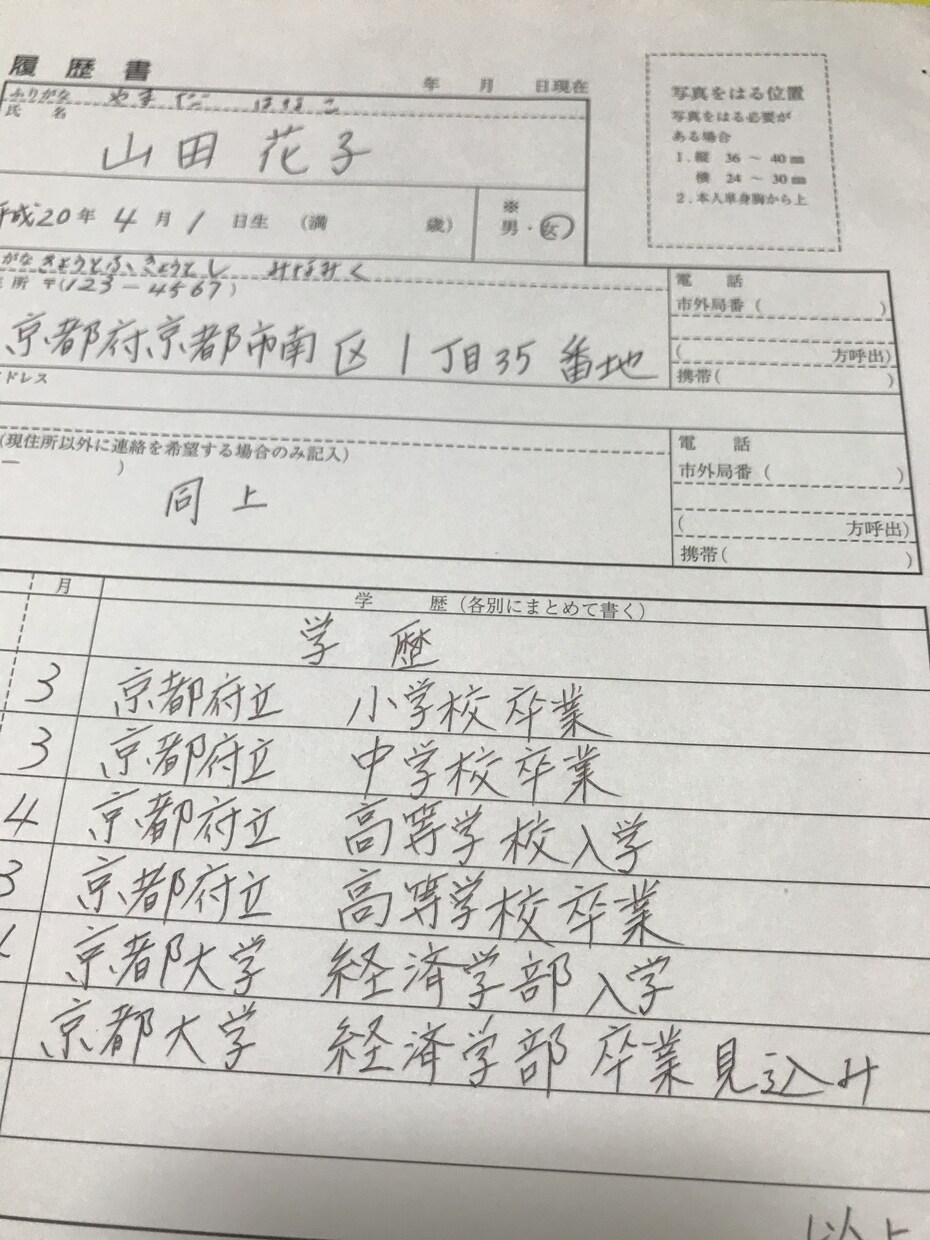 履歴書
年 月 日現在
ふりがな やまだ はなこ
氏 名
山田 花子
平成20年 4月 1日生 (満 歳)
※
男・女
写真をはる位置
写真をはる必要が
ある場合
1.縦 36 〜 40 ㎜
横 24 〜 30 ㎜
2.本人単身胸から上
がな きょうとふきょうとし みなみく
所 〒(123-4567)
京都府京都市南区1丁目35番地
電 話
市外局番( )
( 方呼出)
携帯( )
ドレス
(現住所以外に連絡を希望する場合のみ記入)
― )
同上
電 話
市外局番( )
( 方呼出)
携帯( )
月 学 歴(各別にまとめて書く)
学 歴
3 京都府立 小学校卒業
3 京都府立 中学校卒業
4 京都府立 高等学校入学
3 京都府立 高等学校卒業
京都大学 経済学部入学
京都大学 経済学部 卒業見込み
以上